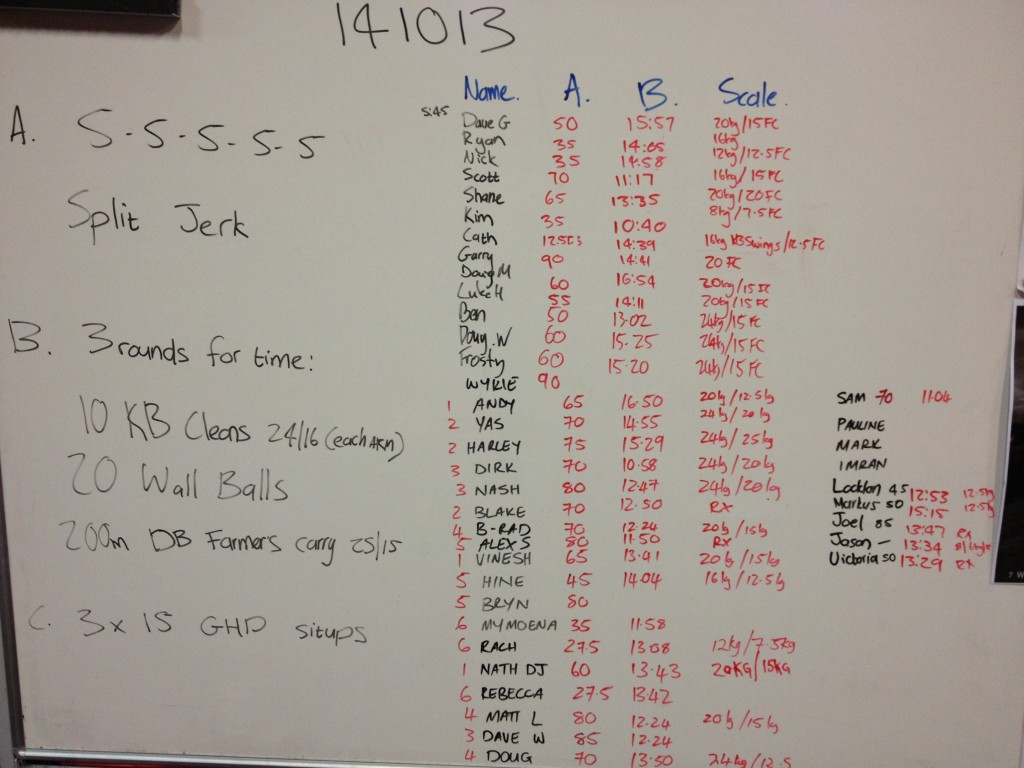 141013
A. 5-5-5-5-5
Split Jerk
B. 3 rounds for time:
10 KB Cleans 24/16 (each ARM)
20 Wall Balls
200m DB Farmers carry 25/15
C. 3 x 15 GHD situps
Name. A. B. Scale.
5:45
Dave G 50 15:57 20kg/15FC
Ryan 35 14:05 16kg
Nick 35 14:58 12kg/12.5FC
Scott 70 11:17 16kg/15FC
Shane 65 13:35 20kg/20FC
Kim 35 10:40 8kg/7.5FC
Cath 14:39 16kg KB Swings/12.5FC
Garry 90 14:41 20FC
Doug M 60 16:54 20kg/15FC
Luke H 55 14:11 20kg/15FC
Ben 50 13.02 24kg/15FC
Doug.W 60 15.25 24kg/15FC
Frosty 60 15.20 24kg/15FC
WYRIE 90
1 ANDY 65 16.50 20kg/12.5kg
2 YAS 70 14.55 24kg/20kg
2 HARLEY 75 15.29 24kg/25kg
3 DIRK 70 10.58 24kg/20kg
3 NASH 80 12.47 24kg/20kg
2 BLAKE 70 12.50 RX
4 B-RAD 70 12.24 20kg/15kg
5 ALEX S 80 11.50 RX
1 VINESH 65 13.41 20kg/15kg
5 HINE 45 14.04 16kg/12.5kg
5 BRYN 80
6 MYMOENA 35 11.58
6 RACH 27.5 13.08 12kg/7.5kg
1 NATH DJ 60 13.43 20KG/15KG
6 REBECCA 27.5 13.42
4 MATT L 80 12.24 20kg/15kg
3 DAVE W 85 12.24
4 DOUG 70 13.50 24kg/12.5
SAM 70 11.04
PAULINE
MARK
IMRAN
Lachlan 45 12:53 12.5kg
Markus 50 15:15 12.5kg
Joel 85 13:47 rx
Jason - 13:34
Victoria 50 13:29 rx